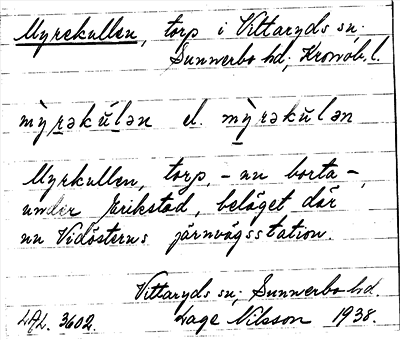 Myrekullen, torp i Vittaryds sn.
Sunnerbo hd; Kronob. l.
mỳrəkúlən el. mỳrəkulən
Myrkullen, torp, - nu borta -,
under Erikstad, beläget där
nu Vidösterns järnvägsstation.
Vittaryds sn; Sunnerbo hd.
LAL. 3602. Tage Nilsson 1938.